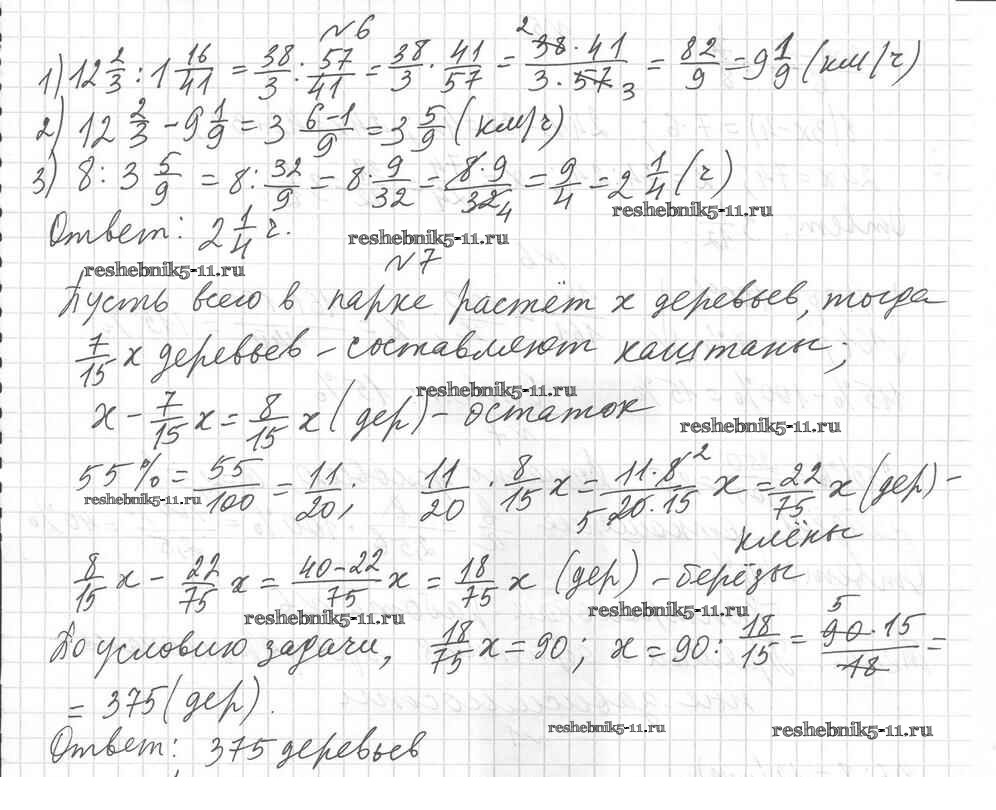 №6
1) 12 2/3 : 1 16/41 = 38/3 · 57/41 = 38/3 · 41/57 = 2 38 · 41 / 3 · 57 3 = 82/9 = 9 1/9 (км/ч)
2) 12 2/3 - 9 1/9 = 3 6-1/9 = 3 5/9 (км/ч)
3) 8 : 3 5/9 = 8 : 32/9 = 8 · 9/32 = 8·9/32 4 = 9/4 = 2 1/4 (ч)
reshebnik5-11.ru
Ответ: 2 1/4 ч.
reshebnik5-11.ru
reshebnik5-11.ru
№7
Пусть всего в парке растёт x деревьев, тогда
7/15 x деревьев - составляют каштаны;
reshebnik5-11.ru
x - 7/15 x = 8/15 x (дер) - остаток
reshebnik5-11.ru
55% = 55/100 = 11/20; 11/20 · 8/15 x = 11·8 2 / 5 20·15 x = 22/75 x (дер) -
reshebnik5-11.ru
клёны
8/15 x - 22/75 x = 40-22/75 x = 18/75 x (дер) - берёзы
reshebnik5-11.ru
reshebnik5-11.ru
По условию задачи, 18/75 x = 90; x = 90 : 18/15 = 5 90·15 / 18 =
= 375 (дер).
reshebnik5-11.ru
reshebnik5-11.ru
Ответ: 375 деревьев